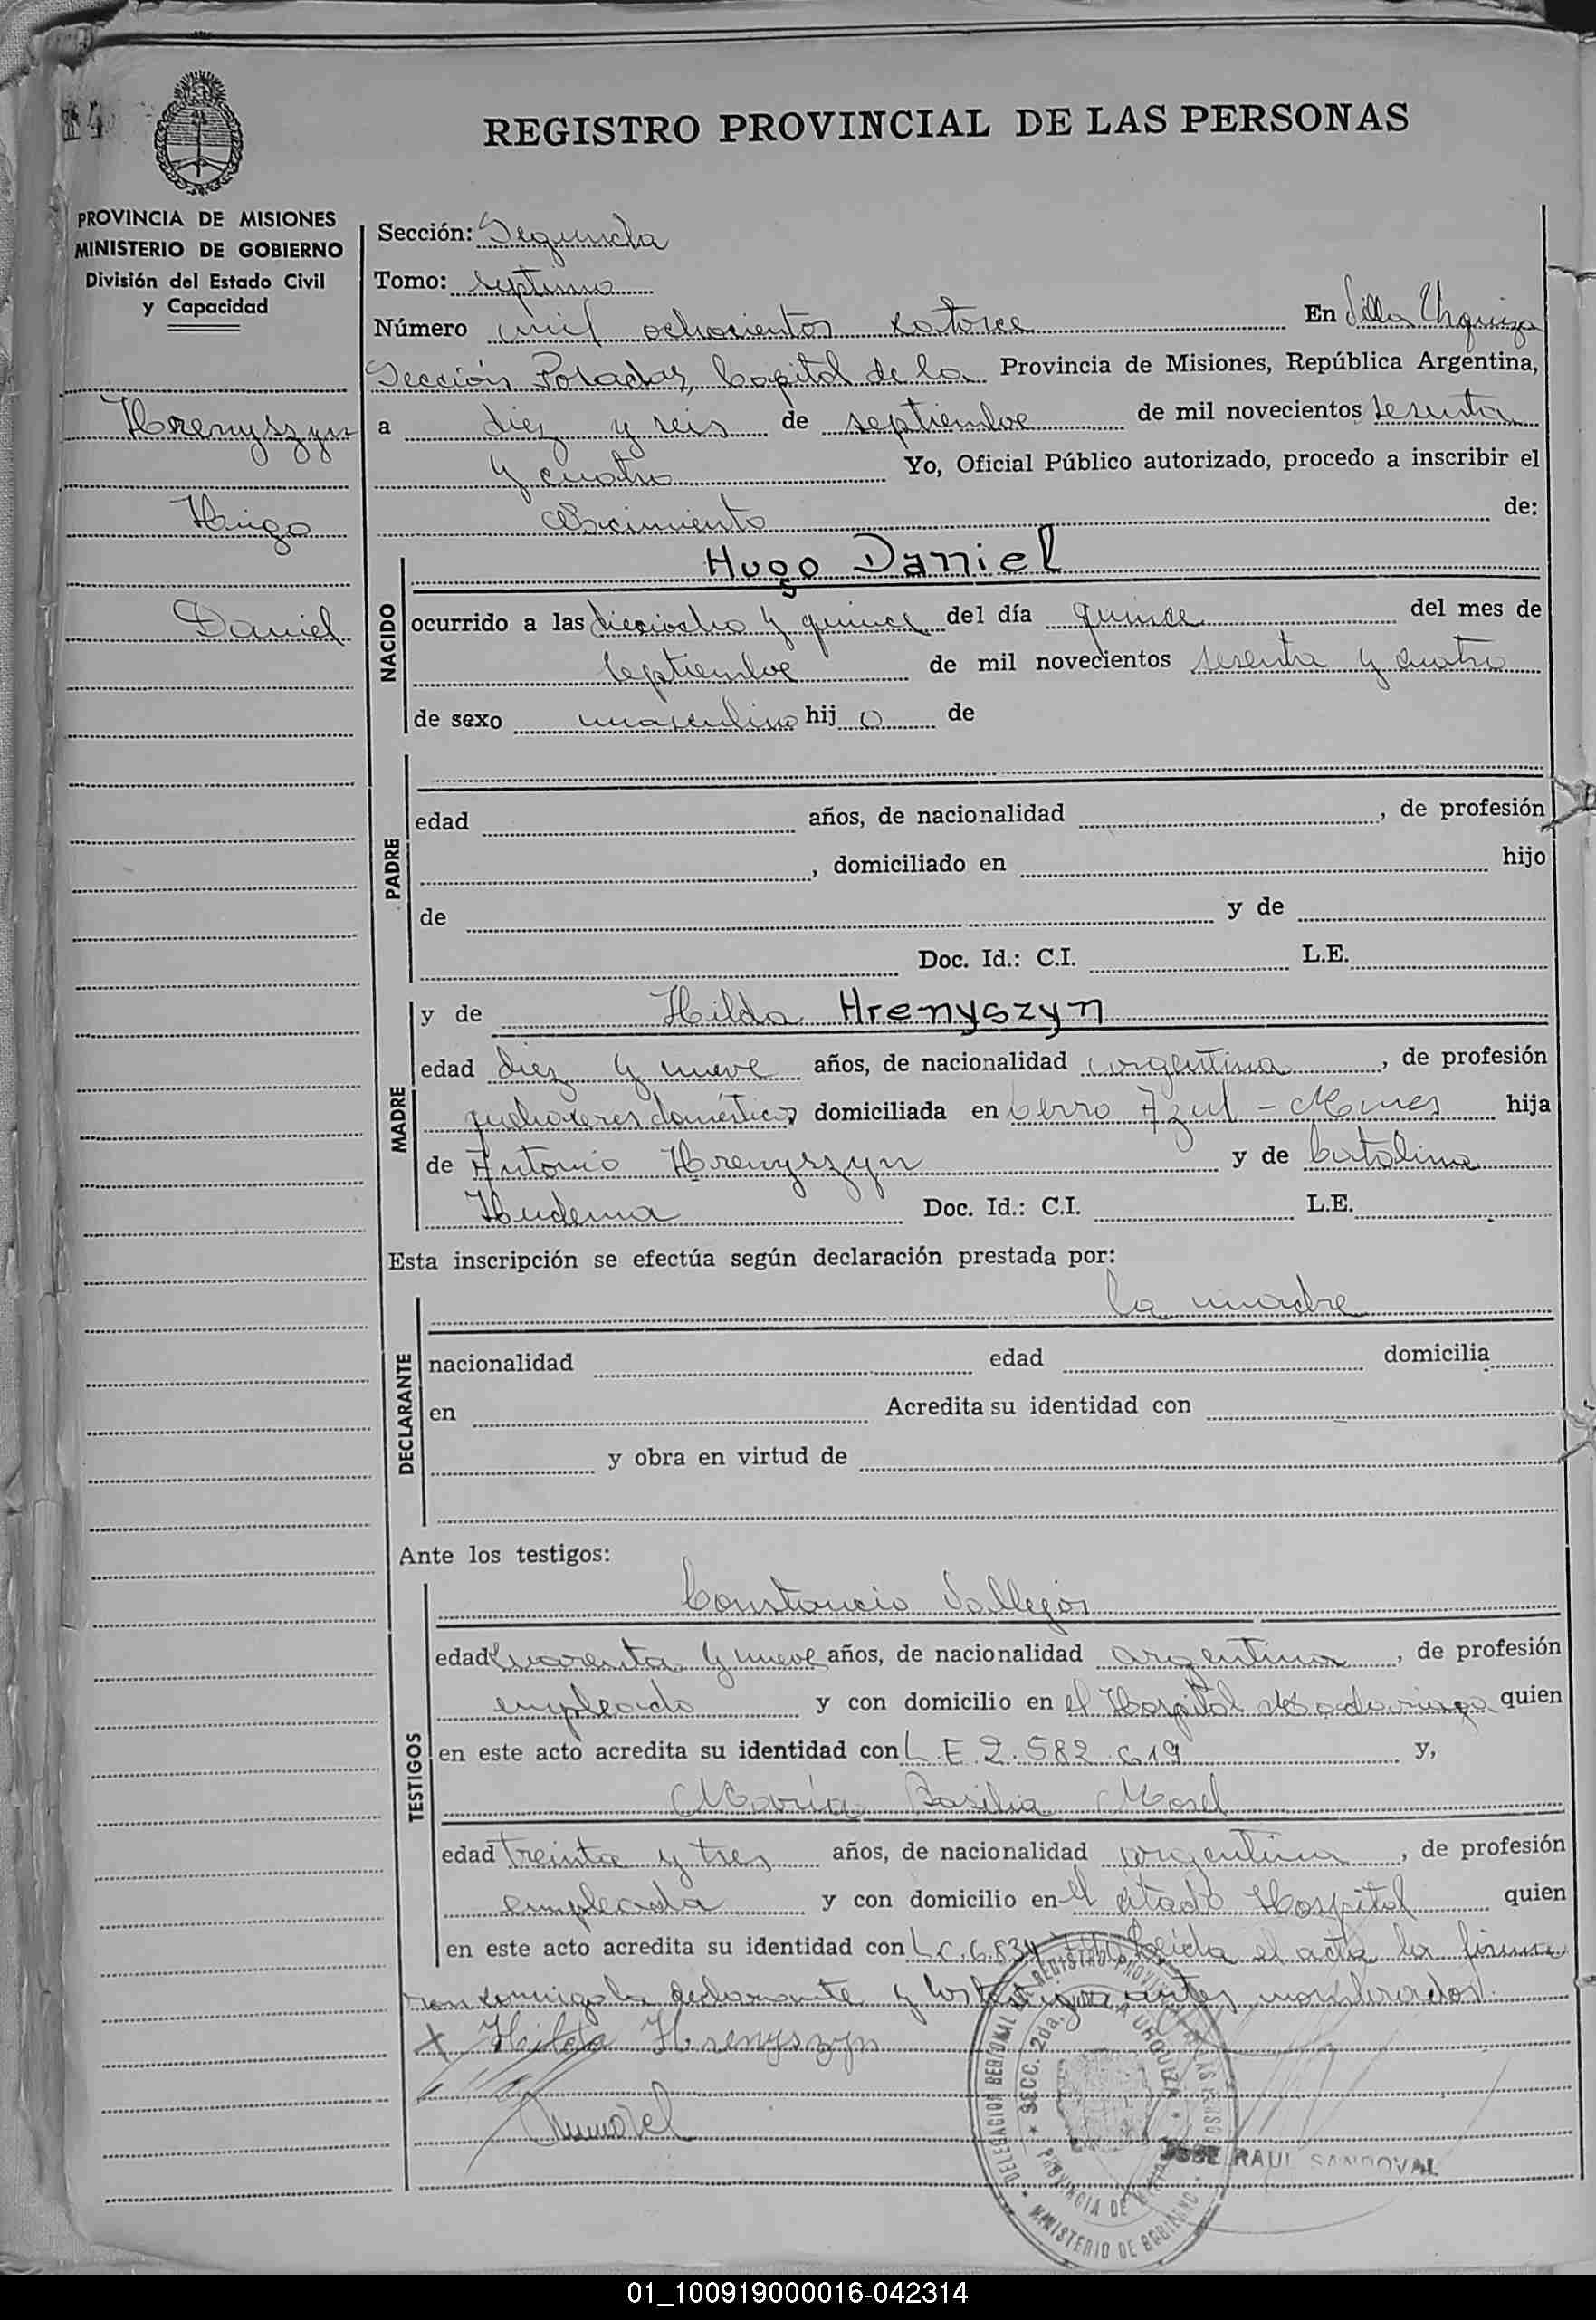 REGISTRO PROVINCIAL DE LAS PERSONAS
PROVINCIA DE MISIONES
MINISTERIO DE GOBIERNO
División del Estado Civil
y Capacidad
Hrenyszyn
Hugo
Daniel
Sección: Segunda
Tomo: septimo
Número mil ochocientos catorce En Villa Urquiza
Sección Posadas, Capital de la Provincia de Misiones, República Argentina,
a diez y seis de septiembre de mil novecientos sesenta
y cuatro Yo, Oficial Público autorizado, procedo a inscribir el
Nacimiento de:
NACIDO
Hugo Daniel
ocurrido a las dieciocho y quince del día quince del mes de
septiembre de mil novecientos sesenta y cuatro
de sexo masculino hij o de
PADRE
edad años, de nacionalidad , de profesión
, domiciliado en hijo
de y de
Doc. Id.: C.I. L.E.
MADRE
y de Hilda Hrenyszyn
edad diez y nueve años, de nacionalidad argentina , de profesión
quehaceres domésticos domiciliada en Cerro Azul - Mnes hija
de Antonio Hrenyszyn y de Catalina
Hudema Doc. Id.: C.I. L.E.
Esta inscripción se efectúa según declaración prestada por:
DECLARANTE
la madre
nacionalidad edad domicilia
en Acredita su identidad con
y obra en virtud de
Ante los testigos:
TESTIGOS
Constancio Vallejos
edad cuarenta y nueve años, de nacionalidad argentina , de profesión
empleado y con domicilio en el Hospital Madariaga quien
en este acto acredita su identidad con L.E. 2.582.619 y,
María Basilia Morel
edad treinta y tres años, de nacionalidad argentina , de profesión
empleada y con domicilio en el citado Hospital quien
en este acto acredita su identidad con L.C. 6.834 Leida el acta la firma
ron conmigo la declarante y los testigos antes nombrados.
x Hilda Hrenyszyn
Mmorel
DELEGACION REGIONAL DE REGISTRO PROVINCIAL DE LAS PERSONAS
SECC. 2da. VILLA URQUIZA
PROVINCIA DE MISIONES
MINISTERIO DE GOBIERNO
JOSE RAUL SANDOVAL
01_100919000016-042314